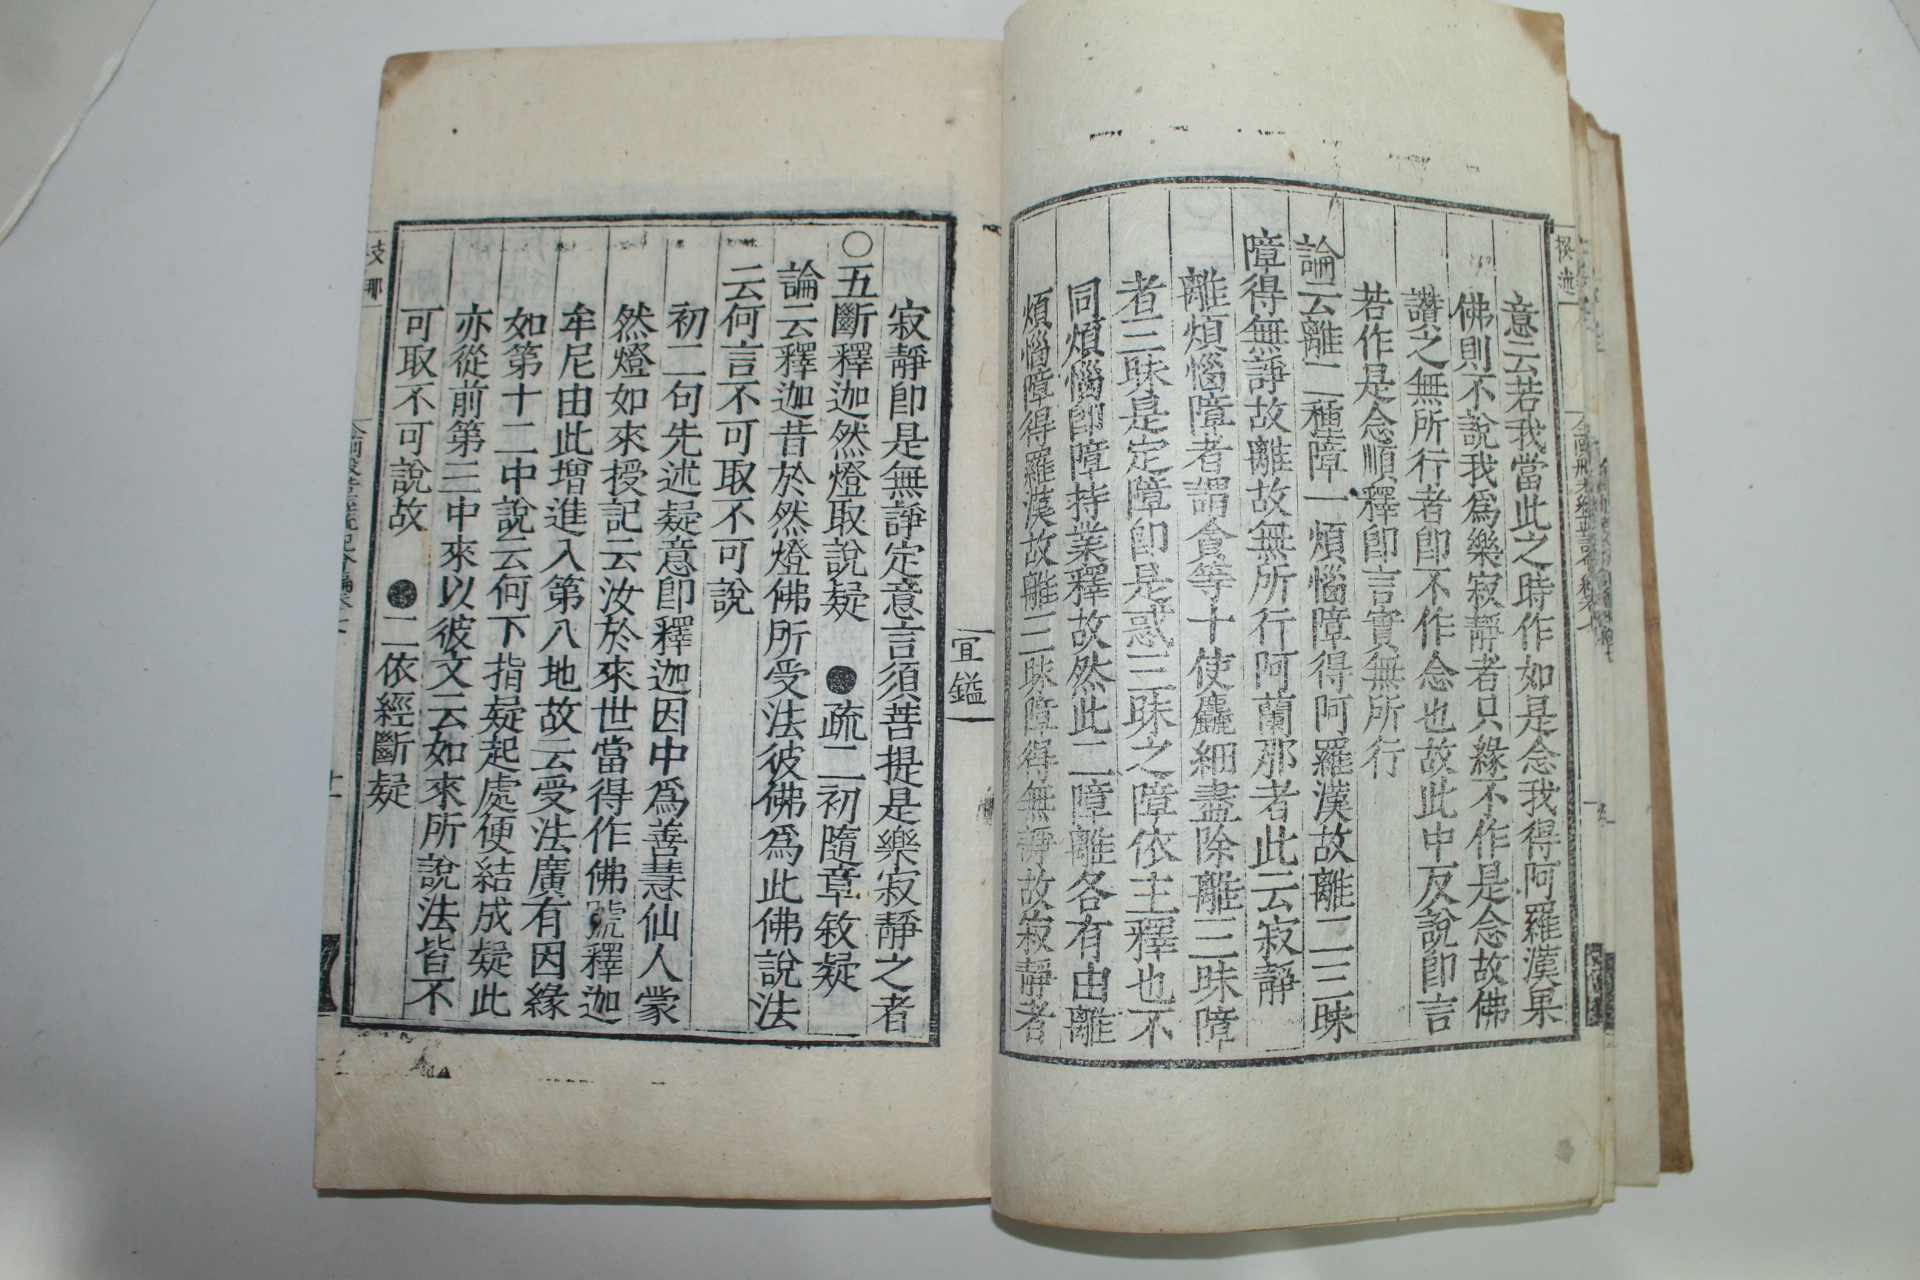 意云若我當此之時作如是念我得阿羅漢果
佛則不說我爲樂寂靜者只緣不作是念故佛
讚之無所行者卽不作念也故此中反說卽言
若作是念順釋卽言實無所行
論云離二種障一煩惱障得阿羅漢故離二三昧
障得無諍故離故無所行阿蘭那者此云寂靜
離煩惱障者謂貪等十使麤細盡除離三昧障
者三昧是定障卽是惑三昧之障依主釋也不
同煩惱卽障持業釋故然此二障離各有由離
煩惱障得羅漢故離三昧障得無諍故寂靜者
寂靜卽是無諍定意言須菩提是樂寂靜之者
○五斷釋迦然燈取說疑 ●疏二初隨章敘疑
論云釋迦昔於然燈佛所受法彼佛爲此佛說法
云何言不可取不可說
初二句先述疑意卽釋迦因中爲善慧仙人蒙
然燈如來授記云汝於來世當得作佛號釋迦
牟尼由此增進入第八地故云受法廣有因緣
如第十二中說云何下指疑起處便結成疑此
亦從前第三中來以彼文云如來所說法皆不
可取不可說故 ●二依經斷疑
宜鎰